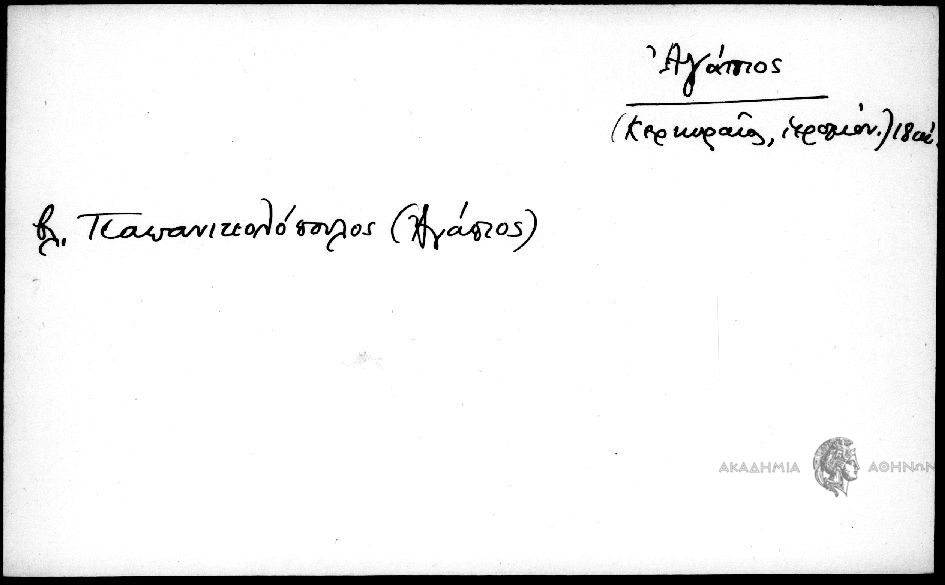 Ἀγάπιος
(Κερκυραῖος, ἱερομόν.) 18 αἰ.
βλ. Παπανικολόπουλος (Ἀγάπιος)
ΑΚΑΔΗΜΙΑ ΑΘΗΝΩΝ